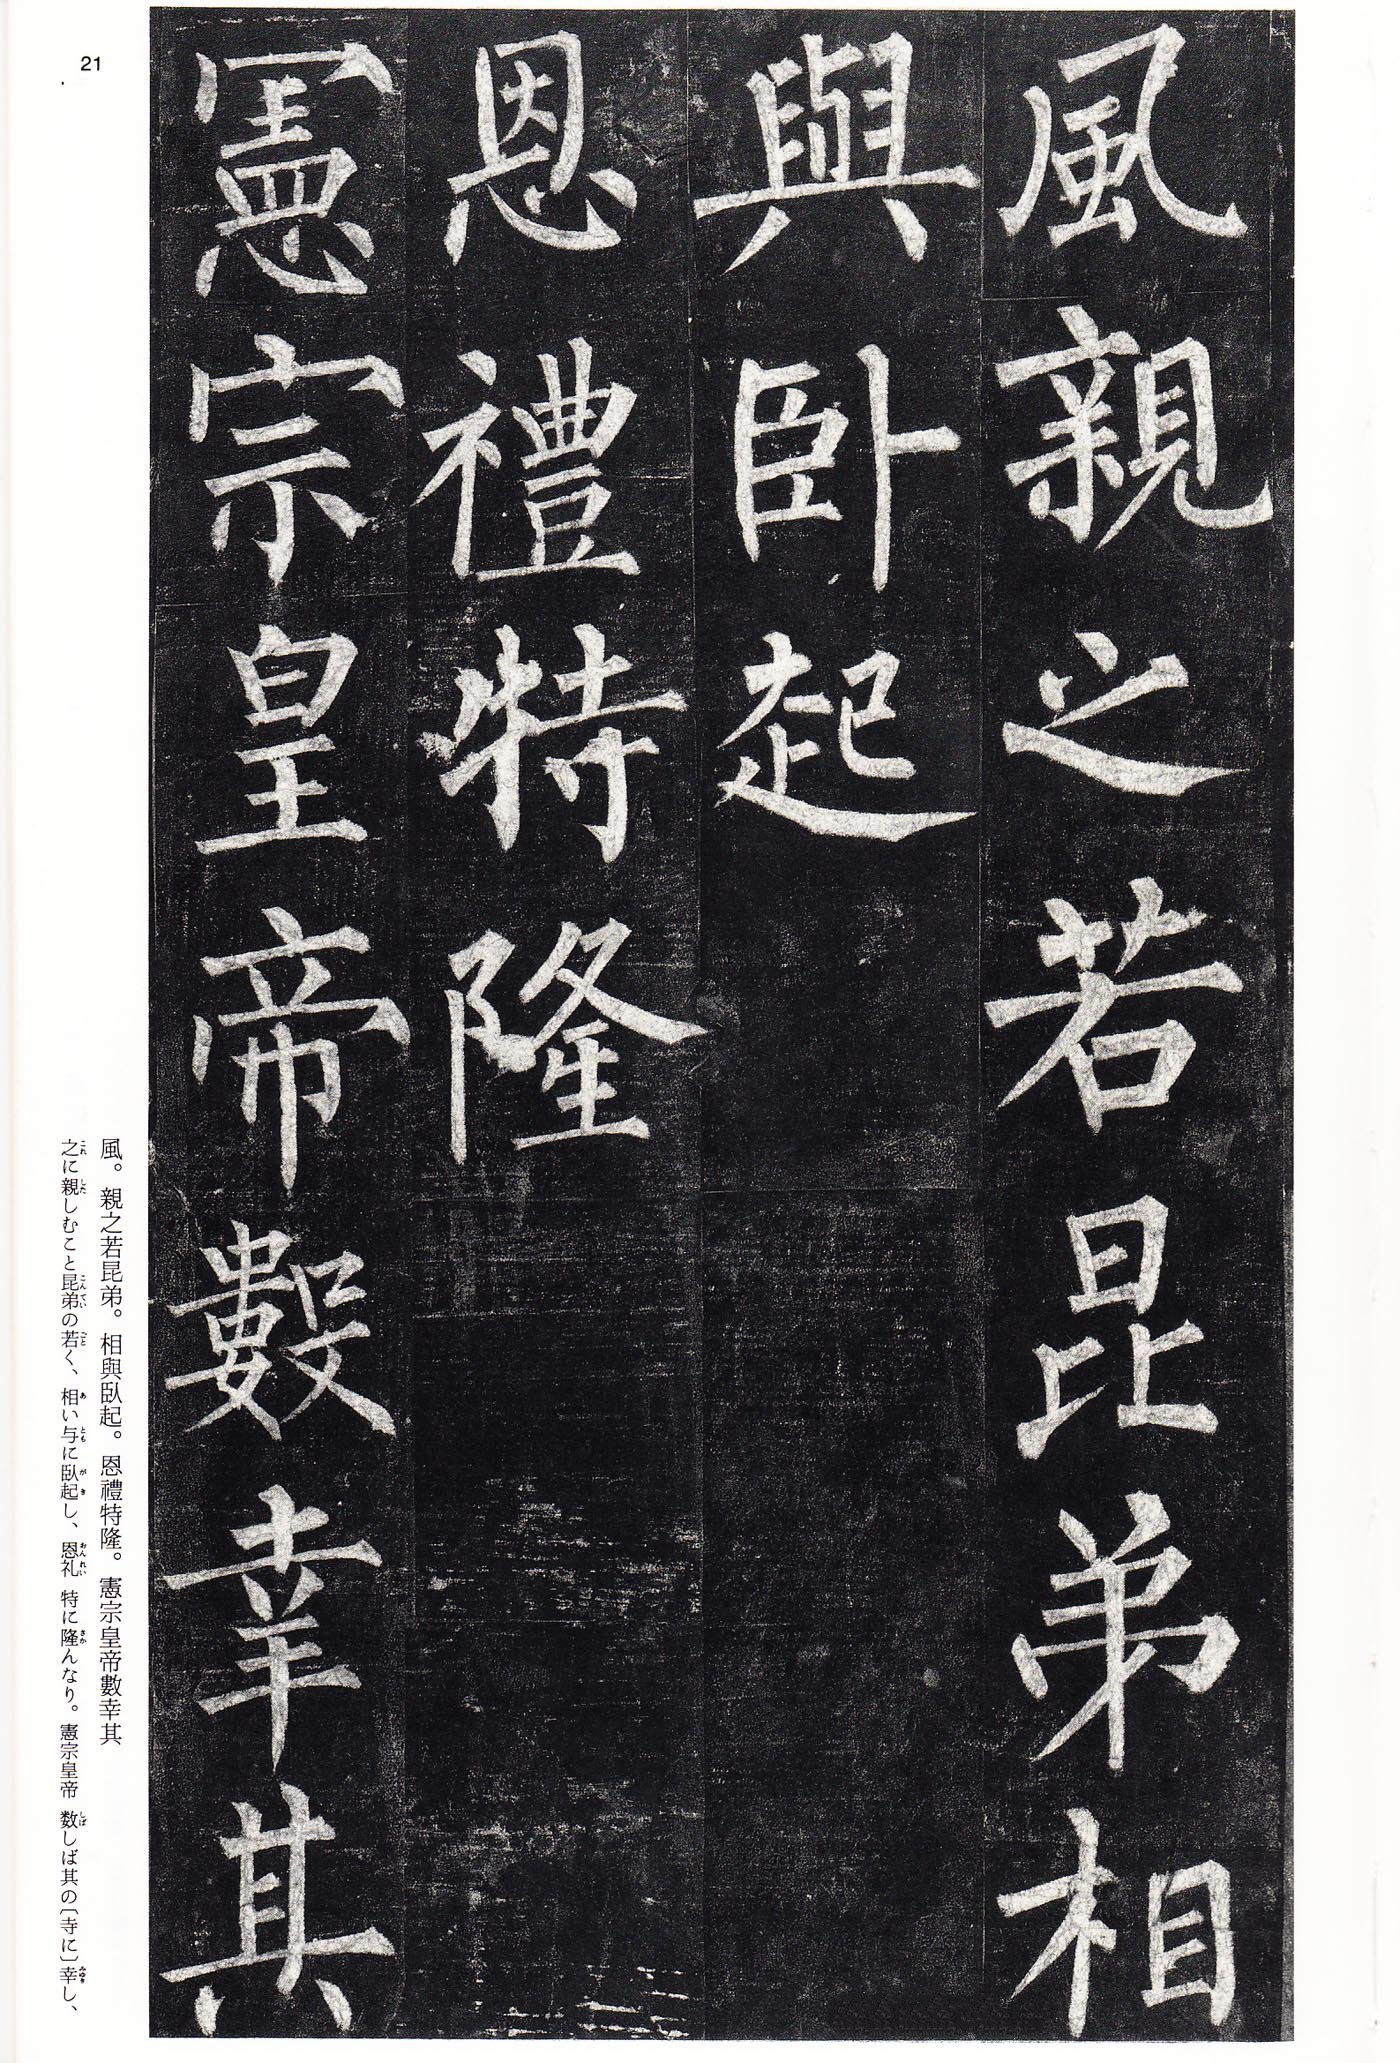 風親之若昆弟相
與臥起
恩禮特隆
憲宗皇帝數幸其
風。親之若昆弟。相與臥起。恩禮特隆。憲宗皇帝數幸其
之に親しむこと昆弟の若く、相い与に臥起し、恩礼 特に隆んなり。憲宗皇帝 数しば其の〔寺に〕幸し、
21